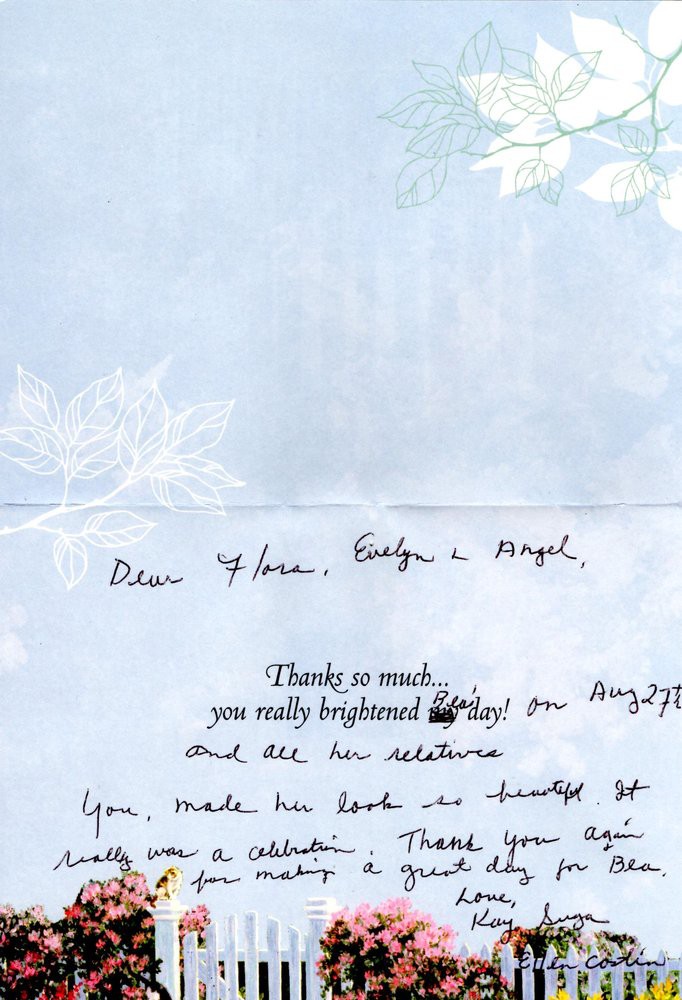 Dear Flora, Evelyn & Angel,
Thanks so much...
you really brightened Bea's day! on Aug 27th
and all her relatives
You, made her look so beautiful. It
really was a celebration. Thank you again
for making a great day for Bea.
Love,
Kay Suga
Ellen Costin